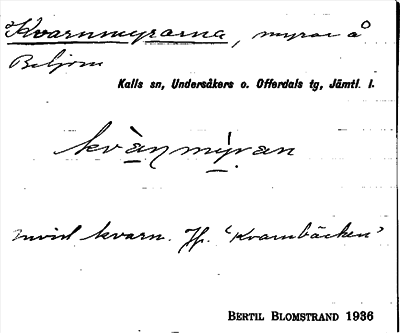 Kvarnmyrarna, myrar å
Beljom
Kalls sn, Undersåkers o. Offerdals tg, Jämtl. l.
kvà̱n̥mýran
invid kvarn. Jfr. "Kvarnbäcken"
BERTIL BLOMSTRAND 1936